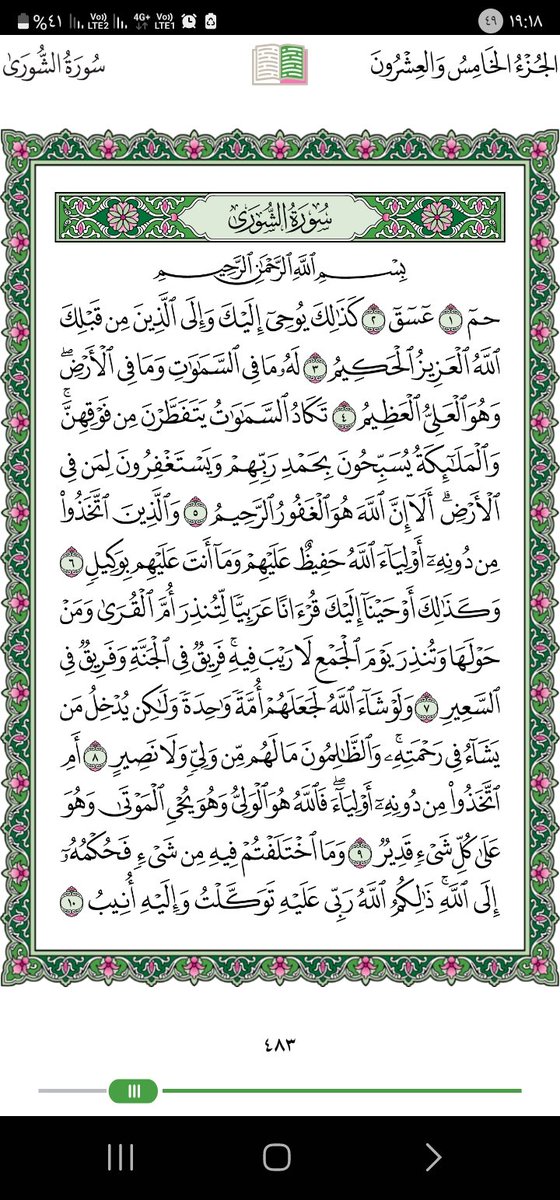 ١٩:١٨ ٤٩ Vo) LTE1 4G+ Vo) LTE2 ٤١%
الجُزْءُ الخَامِسُ وَالعِشْرُونَ سُورَةُ الشُّورَىٰ
سُورَةُ الشُّورَىٰ
بِسْمِ اللَّهِ الرَّحْمَٰنِ الرَّحِيمِ
حمٓ ١ عٓسٓقٓ ٢ كَذَٰلِكَ يُوحِىٓ إِلَيْكَ وَإِلَى ٱلَّذِينَ مِن قَبْلِكَ
ٱللَّهُ ٱلْعَزِيزُ ٱلْحَكِيمُ ٣ لَهُۥ مَا فِى ٱلسَّمَٰوَٰتِ وَمَا فِى ٱلْأَرْضِۖ
وَهُوَ ٱلْعَلِىُّ ٱلْعَظِيمُ ٤ تَكَادُ ٱلسَّمَٰوَٰتُ يَتَفَطَّرْنَ مِن فَوْقِهِنَّۚ
وَٱلْمَلَٰٓئِكَةُ يُسَبِّحُونَ بِحَمْدِ رَبِّهِمْ وَيَسْتَغْفِرُونَ لِمَن فِى
ٱلْأَرْضِۗ أَلَآ إِنَّ ٱللَّهَ هُوَ ٱلْغَفُورُ ٱلرَّحِيمُ ٥ وَٱلَّذِينَ ٱتَّخَذُوا۟
مِن دُونِهِۦٓ أَوْلِيَآءَ ٱللَّهُ حَفِيظٌ عَلَيْهِمْ وَمَآ أَنتَ عَلَيْهِم بِوَكِيلٍ ٦
وَكَذَٰلِكَ أَوْحَيْنَآ إِلَيْكَ قُرْءَانًا عَرَبِيًّا لِّتُنذِرَ أُمَّ ٱلْقُرَىٰ وَمَنْ
حَوْلَهَا وَتُنذِرَ يَوْمَ ٱلْجَمْعِ لَا رَيْبَ فِيهِۚ فَرِيقٌ فِى ٱلْجَنَّةِ وَفَرِيقٌ فِى
ٱلسَّعِيرِ ٧ وَلَوْ شَآءَ ٱللَّهُ لَجَعَلَهُمْ أُمَّةً وَٰحِدَةً وَلَٰكِن يُدْخِلُ مَن
يَشَآءُ فِى رَحْمَتِهِۦۚ وَٱلظَّٰلِمُونَ مَا لَهُم مِّن وَلِىٍّ وَلَا نَصِيرٍ ٨ أَمِ
ٱتَّخَذُوا۟ مِن دُونِهِۦٓ أَوْلِيَآءَۖ فَٱللَّهُ هُوَ ٱلْوَلِىُّ وَهُوَ يُحْىِ ٱلْمَوْتَىٰ وَهُوَ
عَلَىٰ كُلِّ شَىْءٍ قَدِيرٌ ٩ وَمَا ٱخْتَلَفْتُمْ فِيهِ مِن شَىْءٍ فَحُكْمُهُۥٓ
إِلَى ٱللَّهِۚ ذَٰلِكُمُ ٱللَّهُ رَبِّى عَلَيْهِ تَوَكَّلْتُ وَإِلَيْهِ أُنِيبُ ١٠
٤٨٣